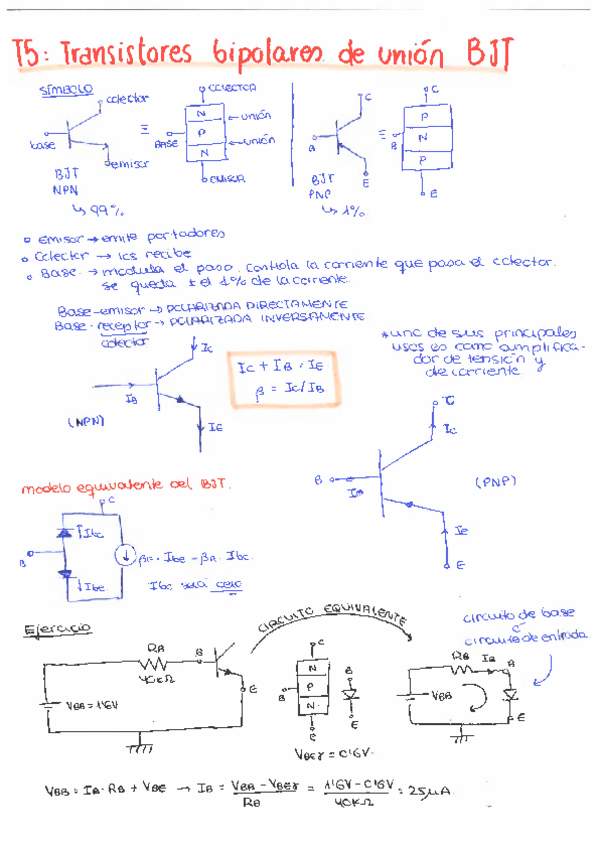 T5: Transistores bipolares de unión BJT
SÍMBOLO
colector
base
emisor
BJT
NPN
↳ 99%
COLECTOR
N
P
N
BASE
← unión
← unión
EMISOR
C
B
E
BJT
PNP
↳ 1%
C
P
N
P
B
E
Emisor → emite portadores
Colector → los recibe
Base → modula el paso. Controla la corriente que pasa el colector.
se queda ± el 1% de la corriente.
Base-emisor → POLARIZADA DIRECTAMENTE
Base-receptor → POLARIZADA INVERSAMENTE
colector
* uno de sus principales
usos es como amplifica-
dor de tensión y
de corriente
IC
IB
IE
(NPN)
IC + IB = IE
β = IC/IB
C
IC
B
IB
(PNP)
IE
E
modelo equivalente del BJT.
C
↑Ibc
B
↓Ibe
Ibc será cero
Ejercicio
CIRCUITO EQUIVALENTE
circuito de base
o
circuito de entrada
RB
40KΩ
B
E
VBB = 1'6V
C
N
P
N
B
E
B
E
VBEγ = 0'6V.
RB
IB
B
VBB
E
VBB = IB · RB + VBE → IB = VBB - VBEγ / RB = 1'6V - 0'6V / 40KΩ = 25μA